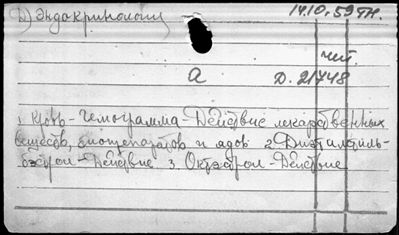 Д) Эндокринологии 14.10.59 тн.
чит.
а Д. 21748
1 Кровь - Гемограмма - Действие лекарственных
веществ, биопрепаратов и ядов 2. Диэтилстиль-
бэстрол - Действие 3. Октэстрол - Действие